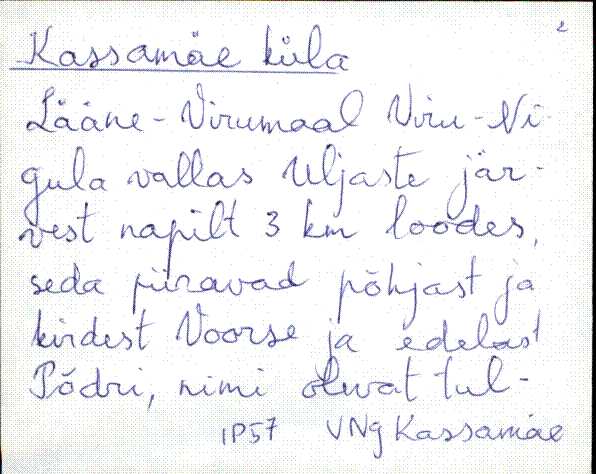 2
Kassamäe küla
Lääne-Virumaal Viru-Ni-
gula vallas Uljaste jär-
vest napilt 3 km loodes,
seda piiravad põhjast ja
kirdest Voorse ja edelast
Põdri, nimi olevat tul-
IP57 VNg Kassamäe